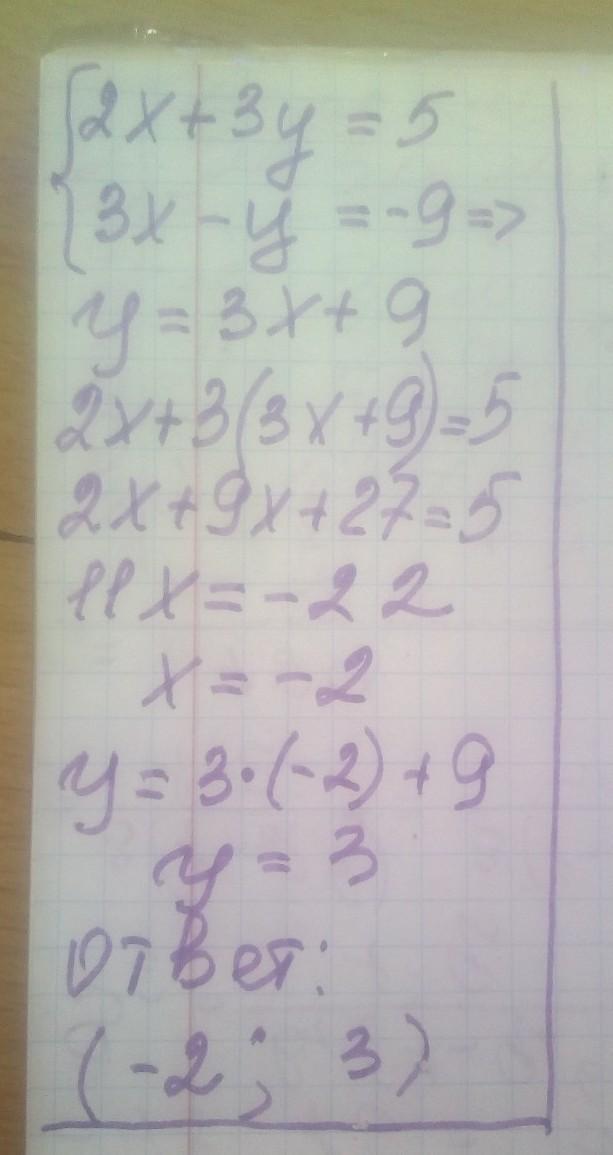 {2x + 3y = 5
3x - y = -9 =>
y = 3x + 9
2x + 3(3x + 9) = 5
2x + 9x + 27 = 5
11x = -22
x = -2
y = 3·(-2) + 9
y = 3
Ответ:
(-2; 3)